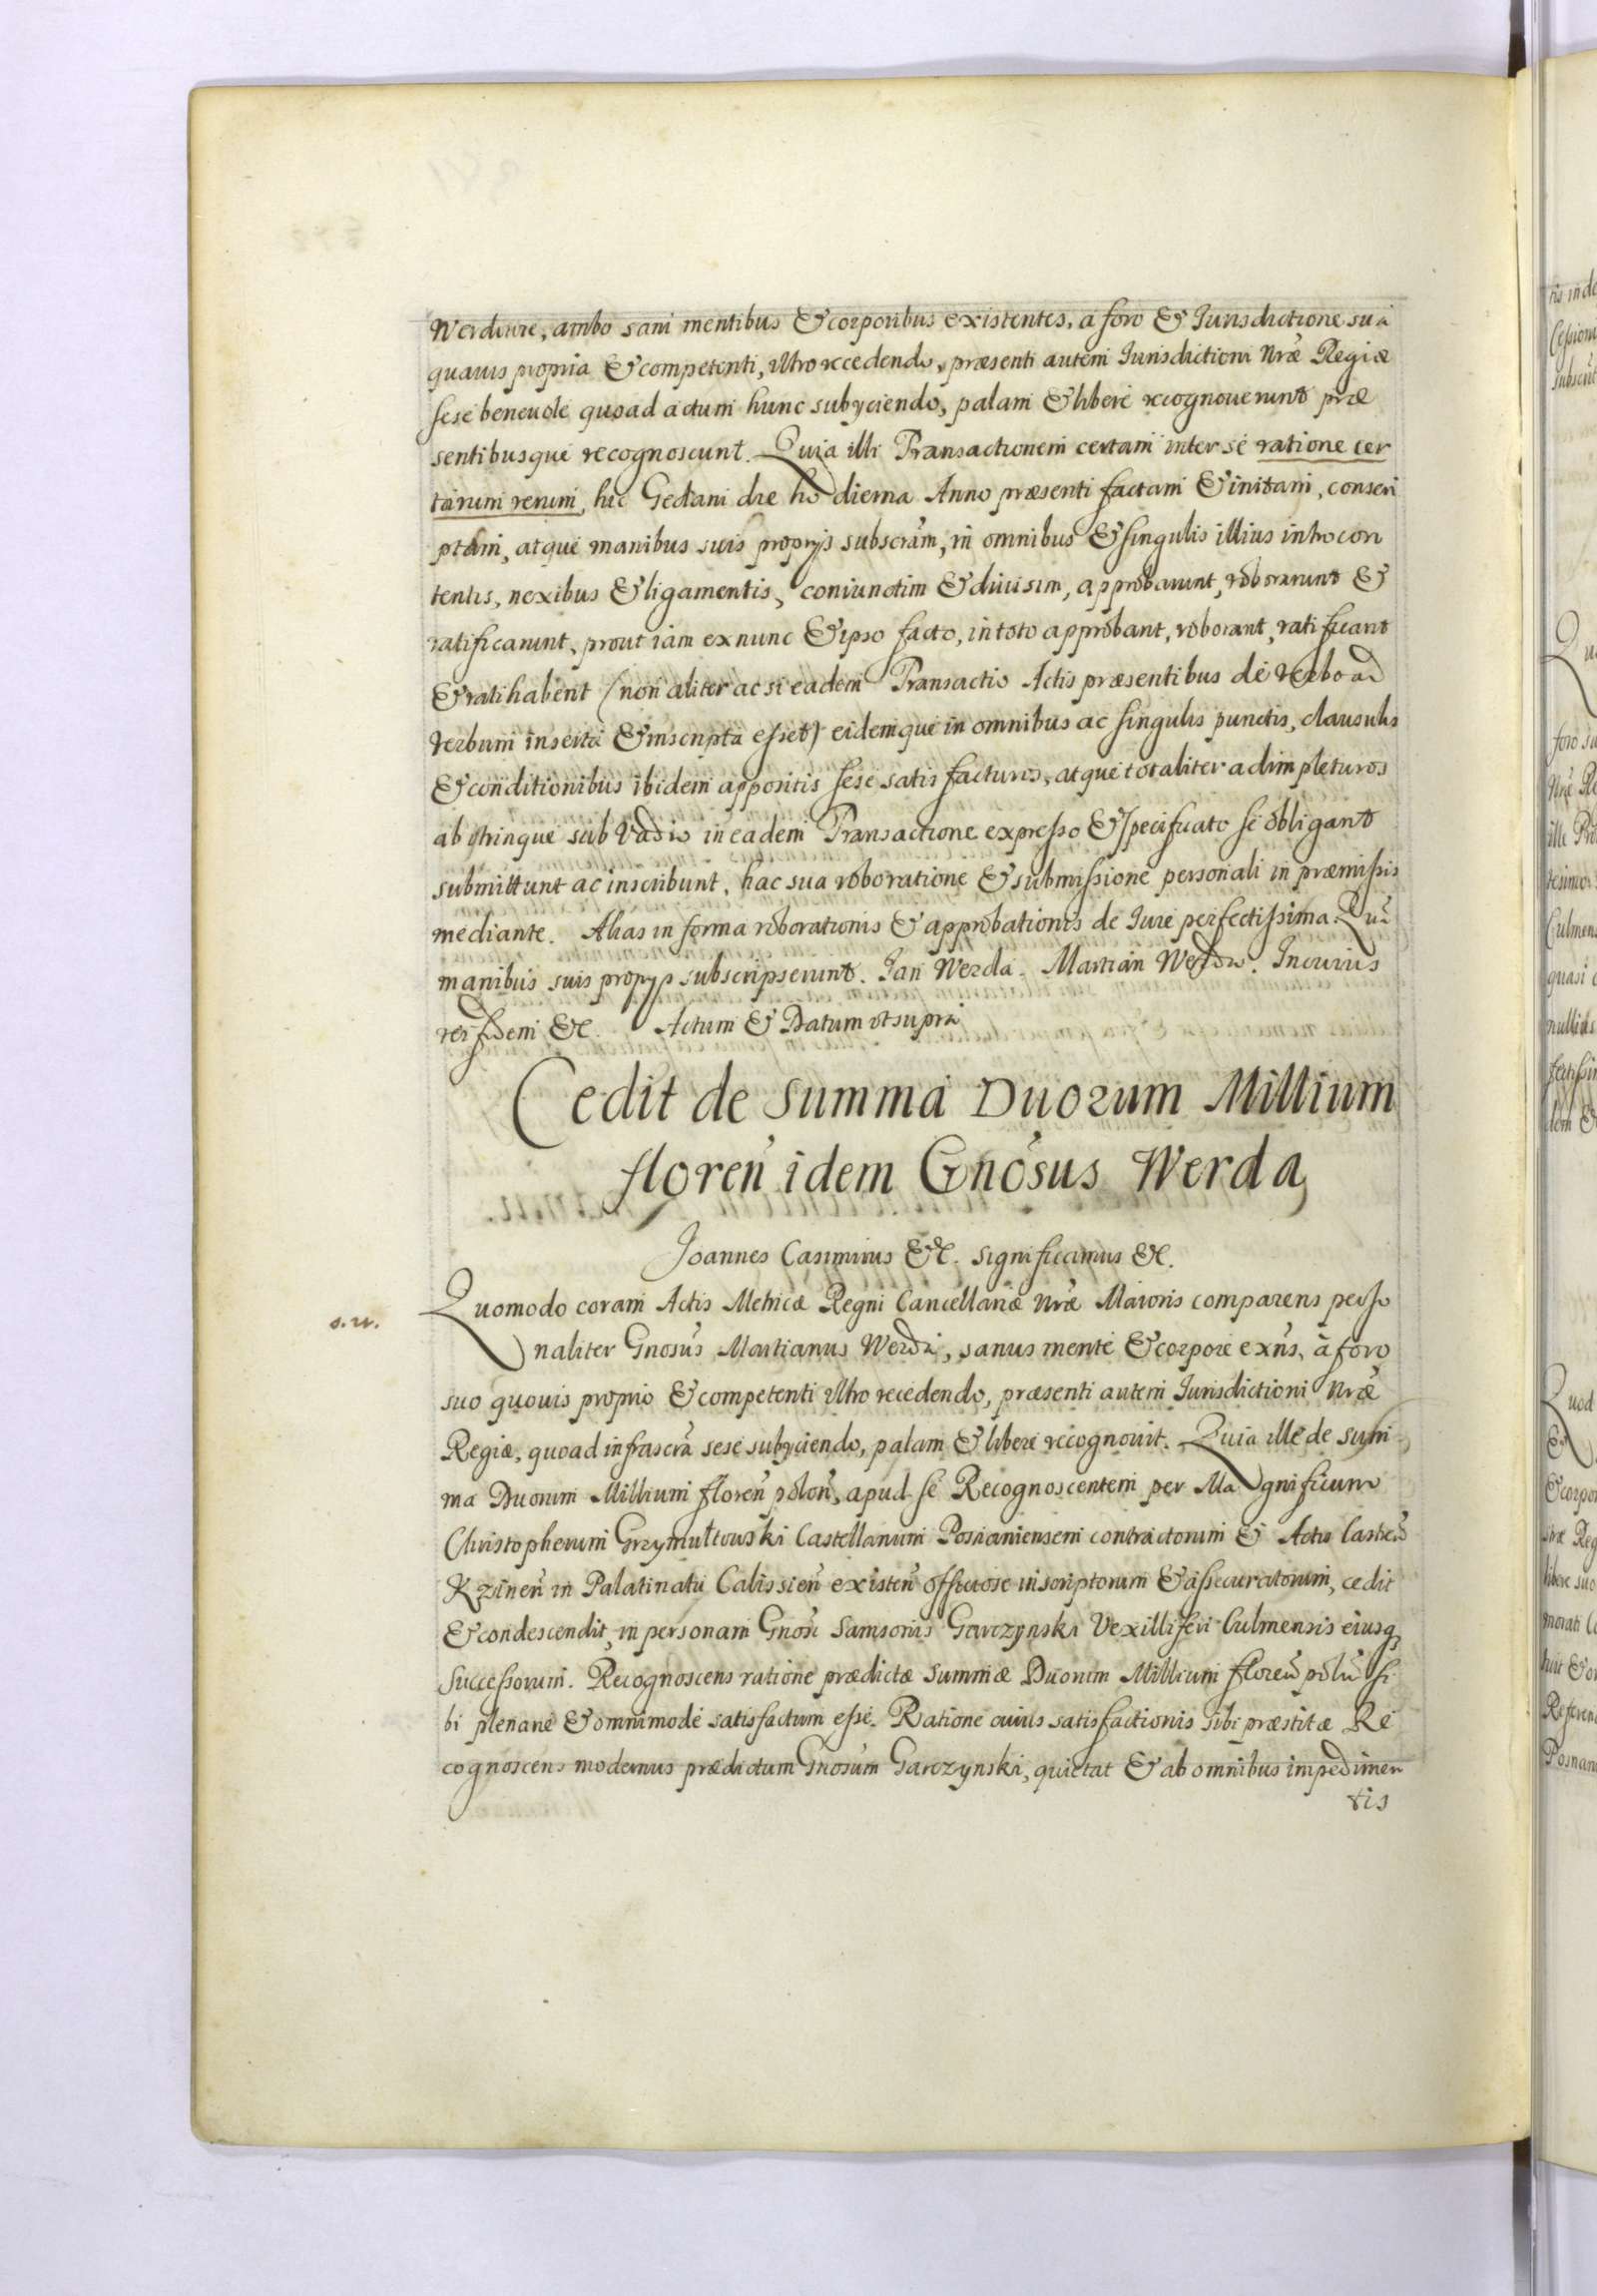 Werdowie, ambo sani mentibus & corporibus existentes, a foro & Iurisdictione sua
quavis propria & competenti, ultro recedendo, præsenti autem Iurisdictioni Nræ Regiæ
sese benevole quoad actum hunc subyciendo, palam & libere recognoverunt præ
sentibusque recognoscunt. Quia illi Transactionem certam inter se ratione cer
tarum rerum, hic Gedani die hodierna Anno præsenti factam & initam, conscri
ptam, atque manibus suis proprijs subscram, in omnibus & singulis illius introcon
tentis, nexibus & ligamentis, coniunctim & divisim, approbarunt, roborarunt &
ratificarunt, prout iam ex nunc & ipso facto, in toto approbant, roborant, ratificant
& ratihabent (non aliter ac si eadem Transactio Actis præsentibus de verbo ad
verbum inserta & inscripta esset) eidemque in omnibus ac singulis punctis, clausulis
& conditionibus ibidem appositis sese satis facturos, atque totaliter adimpleturos
ab utrinque sub Vadio in eadem Transactione expresso & specificato se obligant
submittunt ac inscribunt, hac sua roboratione & submissione personali in præmissis
mediante. Alias in forma roborationis & approbationis de Iure perfectissima. Qui
manibus suis propys subscripserunt. Jan Werda. Martian Werda. In cuius
rei fidem &c. Actum & Datum ut supra
Cedit de Summa Duorum Millium
floren idem Gnosus Werda
Joannes Casimirus &c. Significamus &c.
s.w.
Quomodo coram Actis Metricæ Regni Cancellariæ Nræ Maioris comparens perso
naliter Gnosus Martianus Werda, sanus mente & corpore exns, a foro
suo quovis proprio & competenti ultro recedendo, præsenti autem Iurisdictioni Nræ
Regiæ, quoad infrascra sese subyciendo, palam & libere recognovit. Quia ille de sum
ma Duorum Millium floren polon, apud se Recognoscentem per Magnificum
Christopherum Grzymułtowski Castellanum Posnaniensem contractorum & Actis Castren
Kzinen in Palatinatu Calissien existen officiose inscriptorum & assecuratorum, cedit
& condescendit, in personam Gnosi Samsonis Garczynski Vexilliferi Culmensis eiusq
Successorum. Recognoscens ratione prædictæ summæ Duorum Millium floren poln si
bi plenarie & omnimode satisfactum esse. Ratione cuius satisfactionis sibi præstitæ Re
cognoscens modernus prædictum Gnosum Garczynski, quietat & ab omnibus impedimen
tis